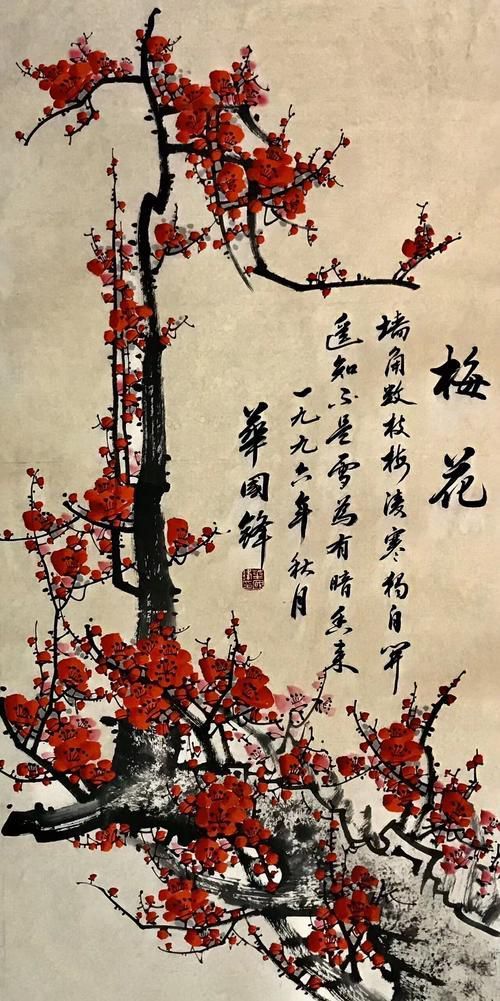 梅花
墙角数枝梅凌寒独自开
遥知不是雪为有暗香来
一九九六年秋月
华国锋